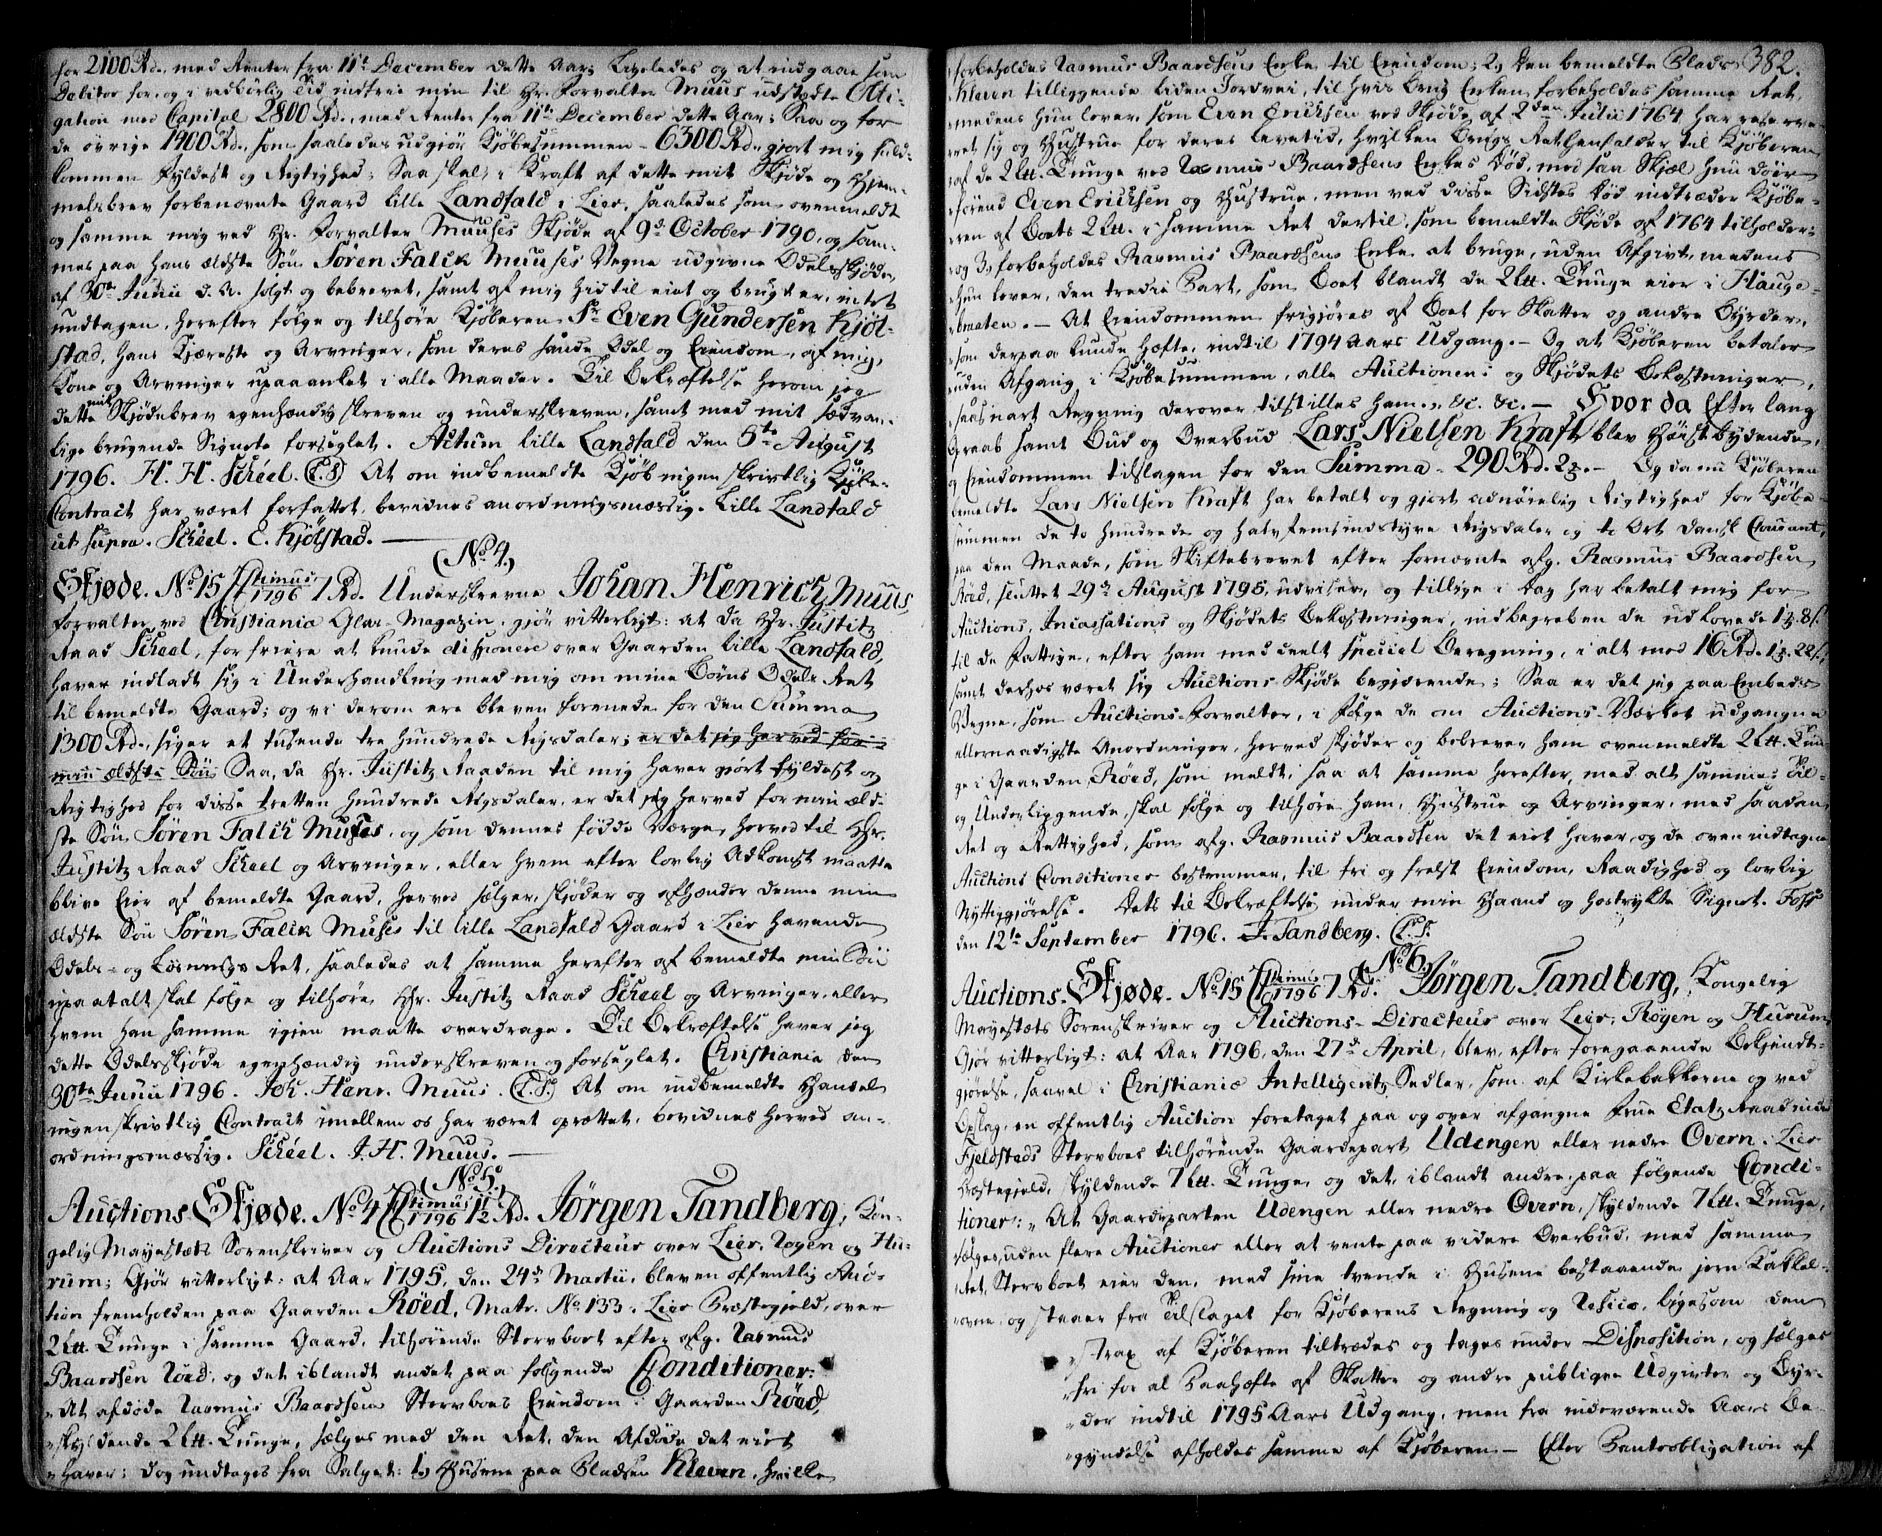 for 2100 Rd., med Renter fra 11te December dette Aar; Ligeledes og at indgaae som
Debitor for, og i vedbørlig Tid indfrie min til Hr. Forvalter Muus udstedte Obli-
gation med Capital 2800 Rd., med Renter fra 11te December dette Aar; Saa og for
de øvrige 1400 Rd., som saaledes udgiør Kjøbesummen 6300 Rd., gjort mig fuld-
kommen Fyldest og Rigtighed; Saa skal i Kraft af dette mit Skjøde og Hjem-
melsbrev forbenævnte Gaard lille Landfald i Lier, saaledes som ovenmeldt
og samme mig ved Hr. Forvalter Muuses Skjøde af 9de October 1790, og sam-
mes paa hans ældste Søn Søren Falck Muuses Vegne udgivne Odelsskjøde,
af 30te Junii d. A. solgt og bebrevet, samt af mig hidtil eiet og brugt er, intet
undtagen, herefter følge og tilhøre Kjøberen Sr. Even Gundersen Kjøl-
stad, hans Kjæreste og Arvinger, som deres sande Odel og Eiendom, af mig,
Kone og Arvinger upaaanket i alle Maader. Til Bekræftelse herom jeg
dette mit Skjødebrev egenhændig skreven og underskreven, samt med mit sædvan-
lige brugende Signete forseglet. Actum lille Landfald den 5te August
1796. H. H. Scheel. (L.S.) At om indbemeldte Kjøb ingen skrivtlig Kjøbe-
Contract har været forfattet, bevidnes anordningsmæssig. Lille Landfald
ut supra. Scheel. E. Kjölstad.
No. 4.
Skjøde. No. 15 1796 1 Rd. Underskrevne Johan Henrich Muus,
Forvalter ved Christiania Glas-Magazin, gjør vitterligt: at da Hr. Justitz
Raad Scheel, for friere at kunde disponere over Gaarden lille Landfald,
haver indladt sig i Underhandling med mig om mine Børns Odels Ret
til bemeldte Gaard; og vi derom ere bleven forenede for den Summa
1300 Rd., siger et tusende tre hundrede Rigsdaler; er det jeg herved for
min ældste Søn Saa, da Hr. Justitz Raaden til mig haver gjort Fyldest og
Rigtighed for disse tretten hundrede Rigsdaler, er det jeg herved for min æld-
ste Søn Søren Falck Muses, og som dennes fødde Værge, herved til Hr.
Justitz Raad Scheel og Arvinger, eller hvem efter lovlig Adkomst maatte
blive Eier af bemeldte Gaard, herved sælger, skjøder og afhænder denne min
ældste Søn Søren Falck Muses til lille Landfald Gaard i Lier havende
Odels- og Løsnings Ret, saaledes at samme herefter af bemeldte min Søn
upaatalt skal følge og tilhøre Hr. Justitz Raad Scheel og Arvinger, eller
hvem han samme igien maatte overdrage. Til Bekræftelse haver jeg
dette Odelsskjøde egenhændig underskreven og forseglet. Christiania den
30te Junii 1796. Joh. Henr. Muus. (L.S.) At om indbemeldte Handel
ingen skrivtlig Contract imellem os har været oprettet, bevidnes herved an-
ordningsmæssig. Scheel. J. H. Muus.
No. 5.
Auctions Skjøde. No. 4 1796 1½ Rd. Jørgen Tandberg, Kon-
gelig Mayestæts Sorenskriver og Auctions Directeur over Lier, Røgen og Hu-
rum; Gjør vitterligt: at Aar 1795, den 24de Martii, bleven offentlig Auc-
tion fremholden paa Gaarden Röed, Matr. No. 133 i Lier Præstegjeld, over
2 Ltt. Tunge i samme Gaard, tilhørende Stervboet efter afg. Rasmus
Baardsen Röed, og det iblandt andet paa følgende Conditioner:
"At afdøde Rasmus Baardsens Stervboes Eiendom i Gaarden Röed,
"skyldende 2 Ltt. Tunge, sælges med den Ret, den Afdøde det eiet
"haver; dog undtages fra Salget: 1) Husene paa Pladsen Kleven, hvilke
382.
forbeholdes Rasmus Baardsens Enke til Eiendom; 2) den bemeldte Plads
Kleven tilliggende liden Jordvei, til hvis Brug Enken forbeholdes samme Ret,
medens hun lever, som Even Ericksen ved Skjøde af 2den Julii 1764 har reserve-
ret sig og Hustrue for deres Levetid, hvilken Brugs Ret henfalder til Kjøberen
af de 2 Ltt. Tunge ved Rasmus Baardsens Enkes Død, med saa Skjæl hun døer
førend Even Ericksen og Hustrue, men ved disse Sidstes Død indtræder Kjøbe-
ren af Boets 2 Ltt. i samme Ret dertil, som bemeldte Skjøde af 1764 tilholder;
og 3) forbeholdes Rasmus Baardsens Enke at bruge, uden Afgivt, medens
hun lever, den tredie Part, som Boet blandt de 2 Ltt. Tunge eier i Hauge-
"maaten. — At Eiendommen frigjøres af Boet for Skatter og andre Byrder,
som derpaa kunde hæfte, indtil 1794 Aars Udgang. — Og at Kjøberen betaler
uden Afgang i Kjøbesummen, alle Auctionens og Skjødets Bekostninger,
saasnart Regning derover tilstilles ham. &c. &c. — Hvorda Efter lang
Opraab samt Bud og Overbud Lars Nielsen Kraft blev Høistbydende,
og Eiendommen tilslagen for den Summa 290 Rd. 2 ₰. — Og da nu Kjøberen
bemeldte Lars Nielsen Kraft har betalt og gjort adnørelig Rigtighed for Kjøbe-
summen de to hundrede og halvfemsindstyve Rigsdaler og to Ort Dansk Courant,
paa den Maade, som Skiftebrevet efter fornævnte afg. Rasmus Baardsen
Röed, sluttet 29de August 1795, udviser, og tillige i Dag har betalt mig for
Auctions, Incassations og Skjødets Bekostninger, indbegreben de udlovede 1 ₰. 8 ſ.
til de Fattige, efter ham meddeelt speciel Beregning, i alt med 16 Rd. 1 ₰. 22 ſ.,
samt derhos været sig Auctions Skjøde begjærende; Saa er det jeg paa Embeds
Vegne, som Auctions-Forvalter, i Følge de om Auctions-Værket udgangne
allernaadigste Anordninger, herved skjøder og bebrever ham ovenmeldte 2 Ltt. Tun-
ge i Gaarden Röed, som meldt, saa at samme herefter, med alt sammes Til-
og Underliggende, skal følge og tilhøre ham, Hustrue og Arvinger, med saadan
Ret og Rettighed, som afg. Rasmus Baardsen det eiet haver, og de oven indtagne
Auctions Conditioner bestemmer, til fri og frelst Eiendom, Raadighed og lovlig
Nyttiggjørelse. Dets til Bekræftelse under min Haand og hostrykte Signet. Foss
den 12te September 1796. J. Tandberg. (L.S.
No. 6.
Auctions-Skjøde. No. 15 1796 1 Rd. Jørgen Tandberg, Kongelig
Mayestæts Sorenskriver og Auctions-Directeur over Lier, Røgen og Hurum
Gjør vitterligt: at Aar 1796, den 27de April, blev, efter foregaaende Bekjendt-
gjørelse, saavel i Christianiæ Intelligentz-Sedler, som af Kirkebakkerne og ved
Opslag, en offentlig Auction foretaget paa og over afgangne Frue Etatz Raadinde
Fjeldsteds Stervboes tilhørende Gaardepart Udengen eller nedre Overn i Lier
Præstegjeld, skyldende 7 Ltt. Tunge, og det, iblandt andre, paa følgende Condi-
tioner: "At Gaardeparten Udengen eller nedre Overn, skyldende 7 Ltt. Tunge,
sælges, uden flere Auctioner eller at vente paa videre Overbud, med samme
Ret, Stervboet eier den, med sine tvende i Husene bestaaende jern Kakkel-
ovne, og staaer fra Tilslaget for Kjøberens Regning og Risico, ligesom den
"strax af Kjøberen tiltrædes og tages under Disposition, og sælges
"fri for al Paahæfte af Skatter og andre publique Udgivter og Byr-
"der indtil 1795 Aars Udgang, men fra indeværende Aars Be-
"gyndelse afholdes samme af Kjøberen. — Efter Panteobligation af